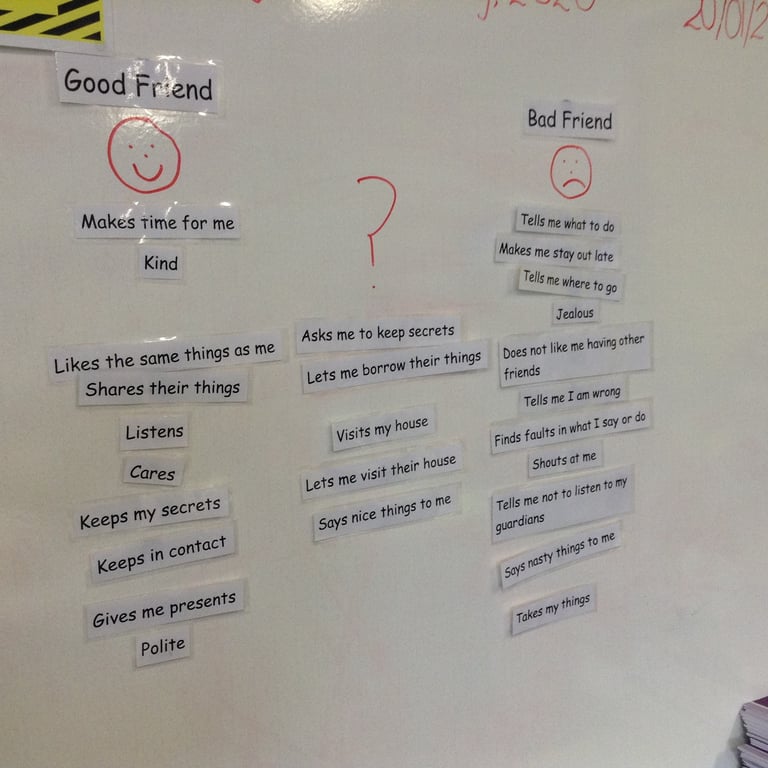 Good Friend
Makes time for me
Kind
Likes the same things as me
Shares their things
Listens
Cares
Keeps my secrets
Keeps in contact
Gives me presents
Polite
?
Asks me to keep secrets
Lets me borrow their things
Visits my house
Lets me visit their house
Says nice things to me
Bad Friend
Tells me what to do
Makes me stay out late
Tells me where to go
Jealous
Does not like me having other
friends
Tells me I am wrong
Finds faults in what I say or do
Shouts at me
Tells me not to listen to my
guardians
Says nasty things to me
Takes my things